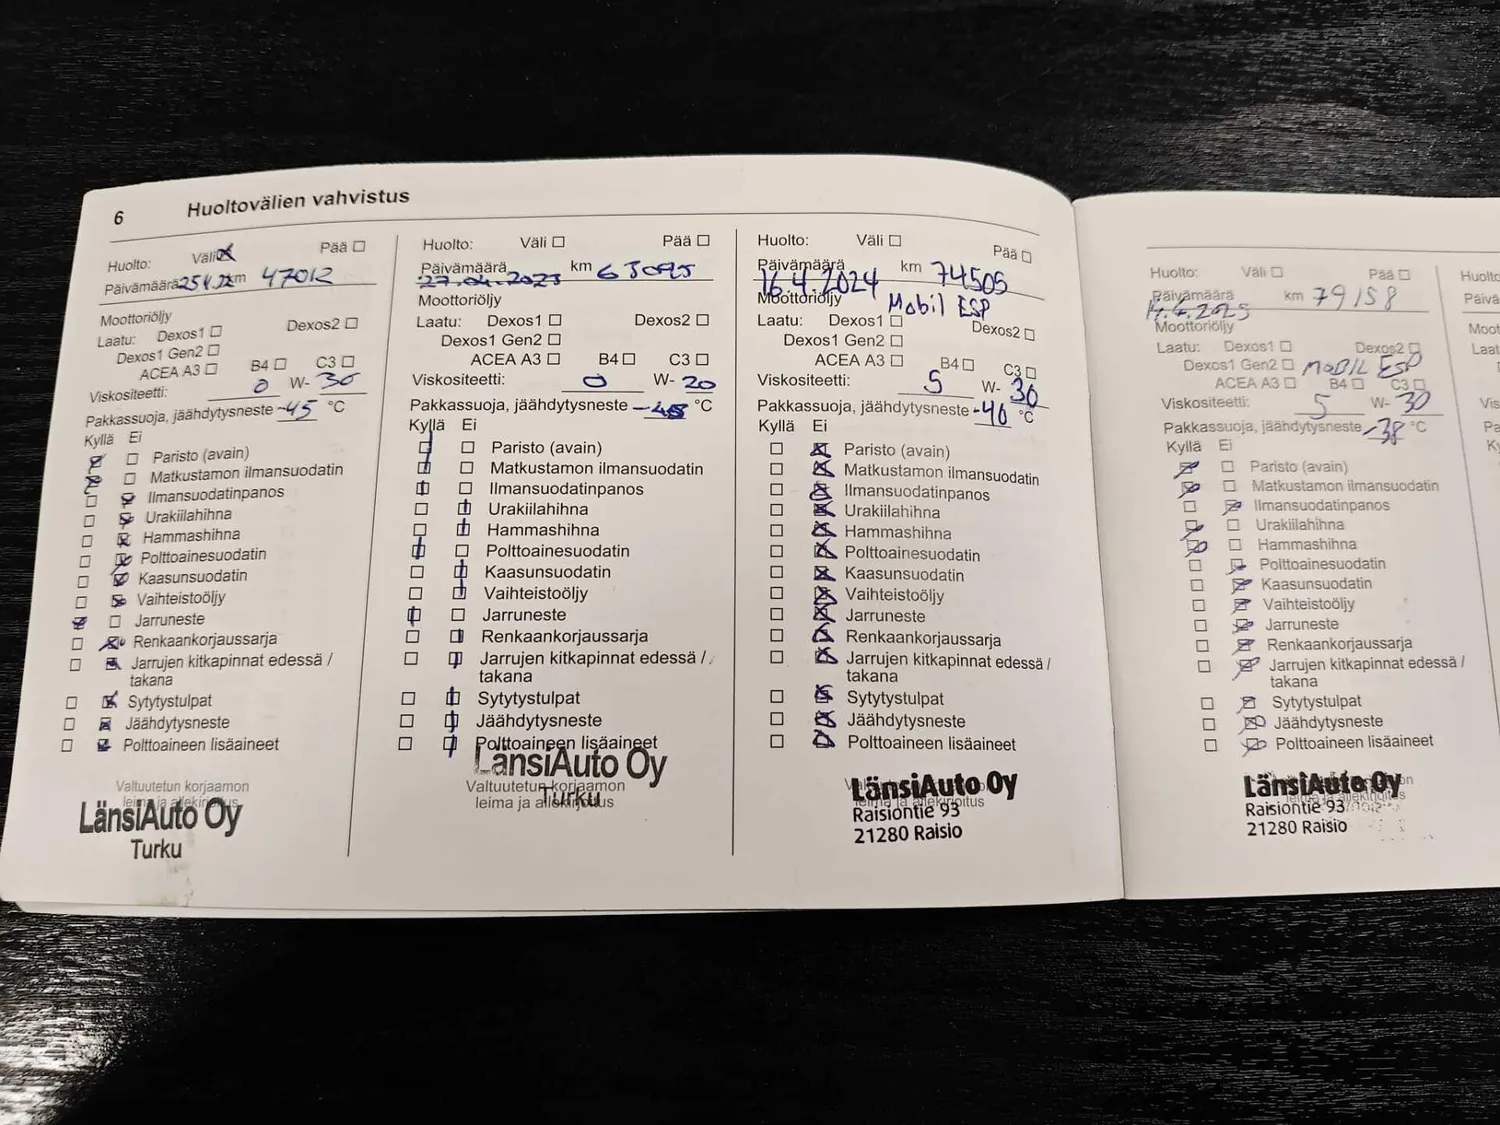 6
Huoltovälien vahvistus
Huolto: Väli Pää
Päivämäärä 25.4.22 km 47012
Moottoriöljy
Laatu: Dexos1 Dexos2
Dexos1 Gen2
ACEA A3 B4 C3
Viskositeetti: 0 W- 30
Pakkassuoja, jäähdytysneste -45 °C
Kyllä Ei
Paristo (avain)
Matkustamon ilmansuodatin
Ilmansuodatinpanos
Urakiilahihna
Hammashihna
Polttoainesuodatin
Kaasunsuodatin
Vaihteistoöljy
Jarruneste
Renkaankorjaussarja
Jarrujen kitkapinnat edessä /
takana
Sytytystulpat
Jäähdytysneste
Polttoaineen lisäaineet
Valtuutetun korjaamon
leima ja allekirjoitus
LänsiAuto Oy
Turku
Huolto: Väli Pää
Päivämäärä 27.04.2023 km
Moottoriöljy
Laatu: Dexos1 Dexos2
Dexos1 Gen2
ACEA A3 B4 C3
Viskositeetti: 0 W- 20
Pakkassuoja, jäähdytysneste °C
Kyllä Ei
Paristo (avain)
Matkustamon ilmansuodatin
Ilmansuodatinpanos
Urakiilahihna
Hammashihna
Polttoainesuodatin
Kaasunsuodatin
Vaihteistoöljy
Jarruneste
Renkaankorjaussarja
Jarrujen kitkapinnat edessä /
takana
Sytytystulpat
Jäähdytysneste
Polttoaineen lisäaineet
LänsiAuto Oy
Valtuutetun korjaamon
Turku
leima ja allekirjoitus
Huolto: Väli Pää
Päivämäärä km 74505
16.4.2024
Moottoriöljy Mobil ESP
Laatu: Dexos1 Dexos2
Dexos1 Gen2
ACEA A3 B4 C3
Viskositeetti: 5 W- 30
Pakkassuoja, jäähdytysneste -40 °C
Kyllä Ei
Paristo (avain)
Matkustamon ilmansuodatin
Ilmansuodatinpanos
Urakiilahihna
Hammashihna
Polttoainesuodatin
Kaasunsuodatin
Vaihteistoöljy
Jarruneste
Renkaankorjaussarja
Jarrujen kitkapinnat edessä /
takana
Sytytystulpat
Jäähdytysneste
Polttoaineen lisäaineet
LänsiAuto Oy
leima ja allekirjoitus
Raisiontie 93
21280 Raisio
Huolto: Väli Pää
Päivämäärä km 79158
Moottoriöljy
Laatu: Dexos1 Dexos2
Dexos1 Gen2 MOBIL ESP
ACEA A3 B4 C3
Viskositeetti: 5 W- 30
Pakkassuoja, jäähdytysneste -38 °C
Kyllä Ei
Paristo (avain)
Matkustamon ilmansuodatin
Ilmansuodatinpanos
Urakiilahihna
Hammashihna
Polttoainesuodatin
Kaasunsuodatin
Vaihteistoöljy
Jarruneste
Renkaankorjaussarja
Jarrujen kitkapinnat edessä /
takana
Sytytystulpat
Jäähdytysneste
Polttoaineen lisäaineet
LänsiAuto Oy
Raisiontie 93
21280 Raisio